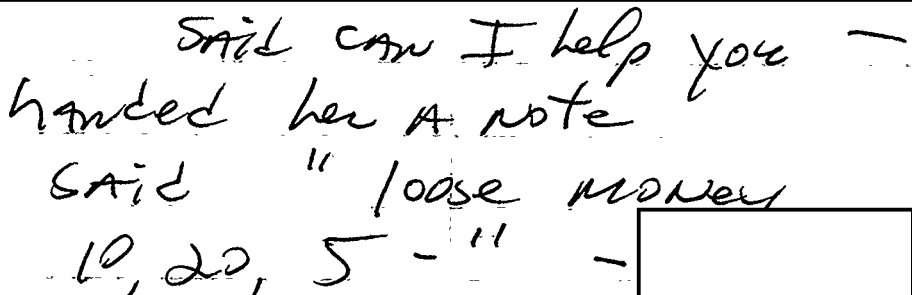 said can I help you —
handed her A note
said " loose money
10, 20, 5 - " -